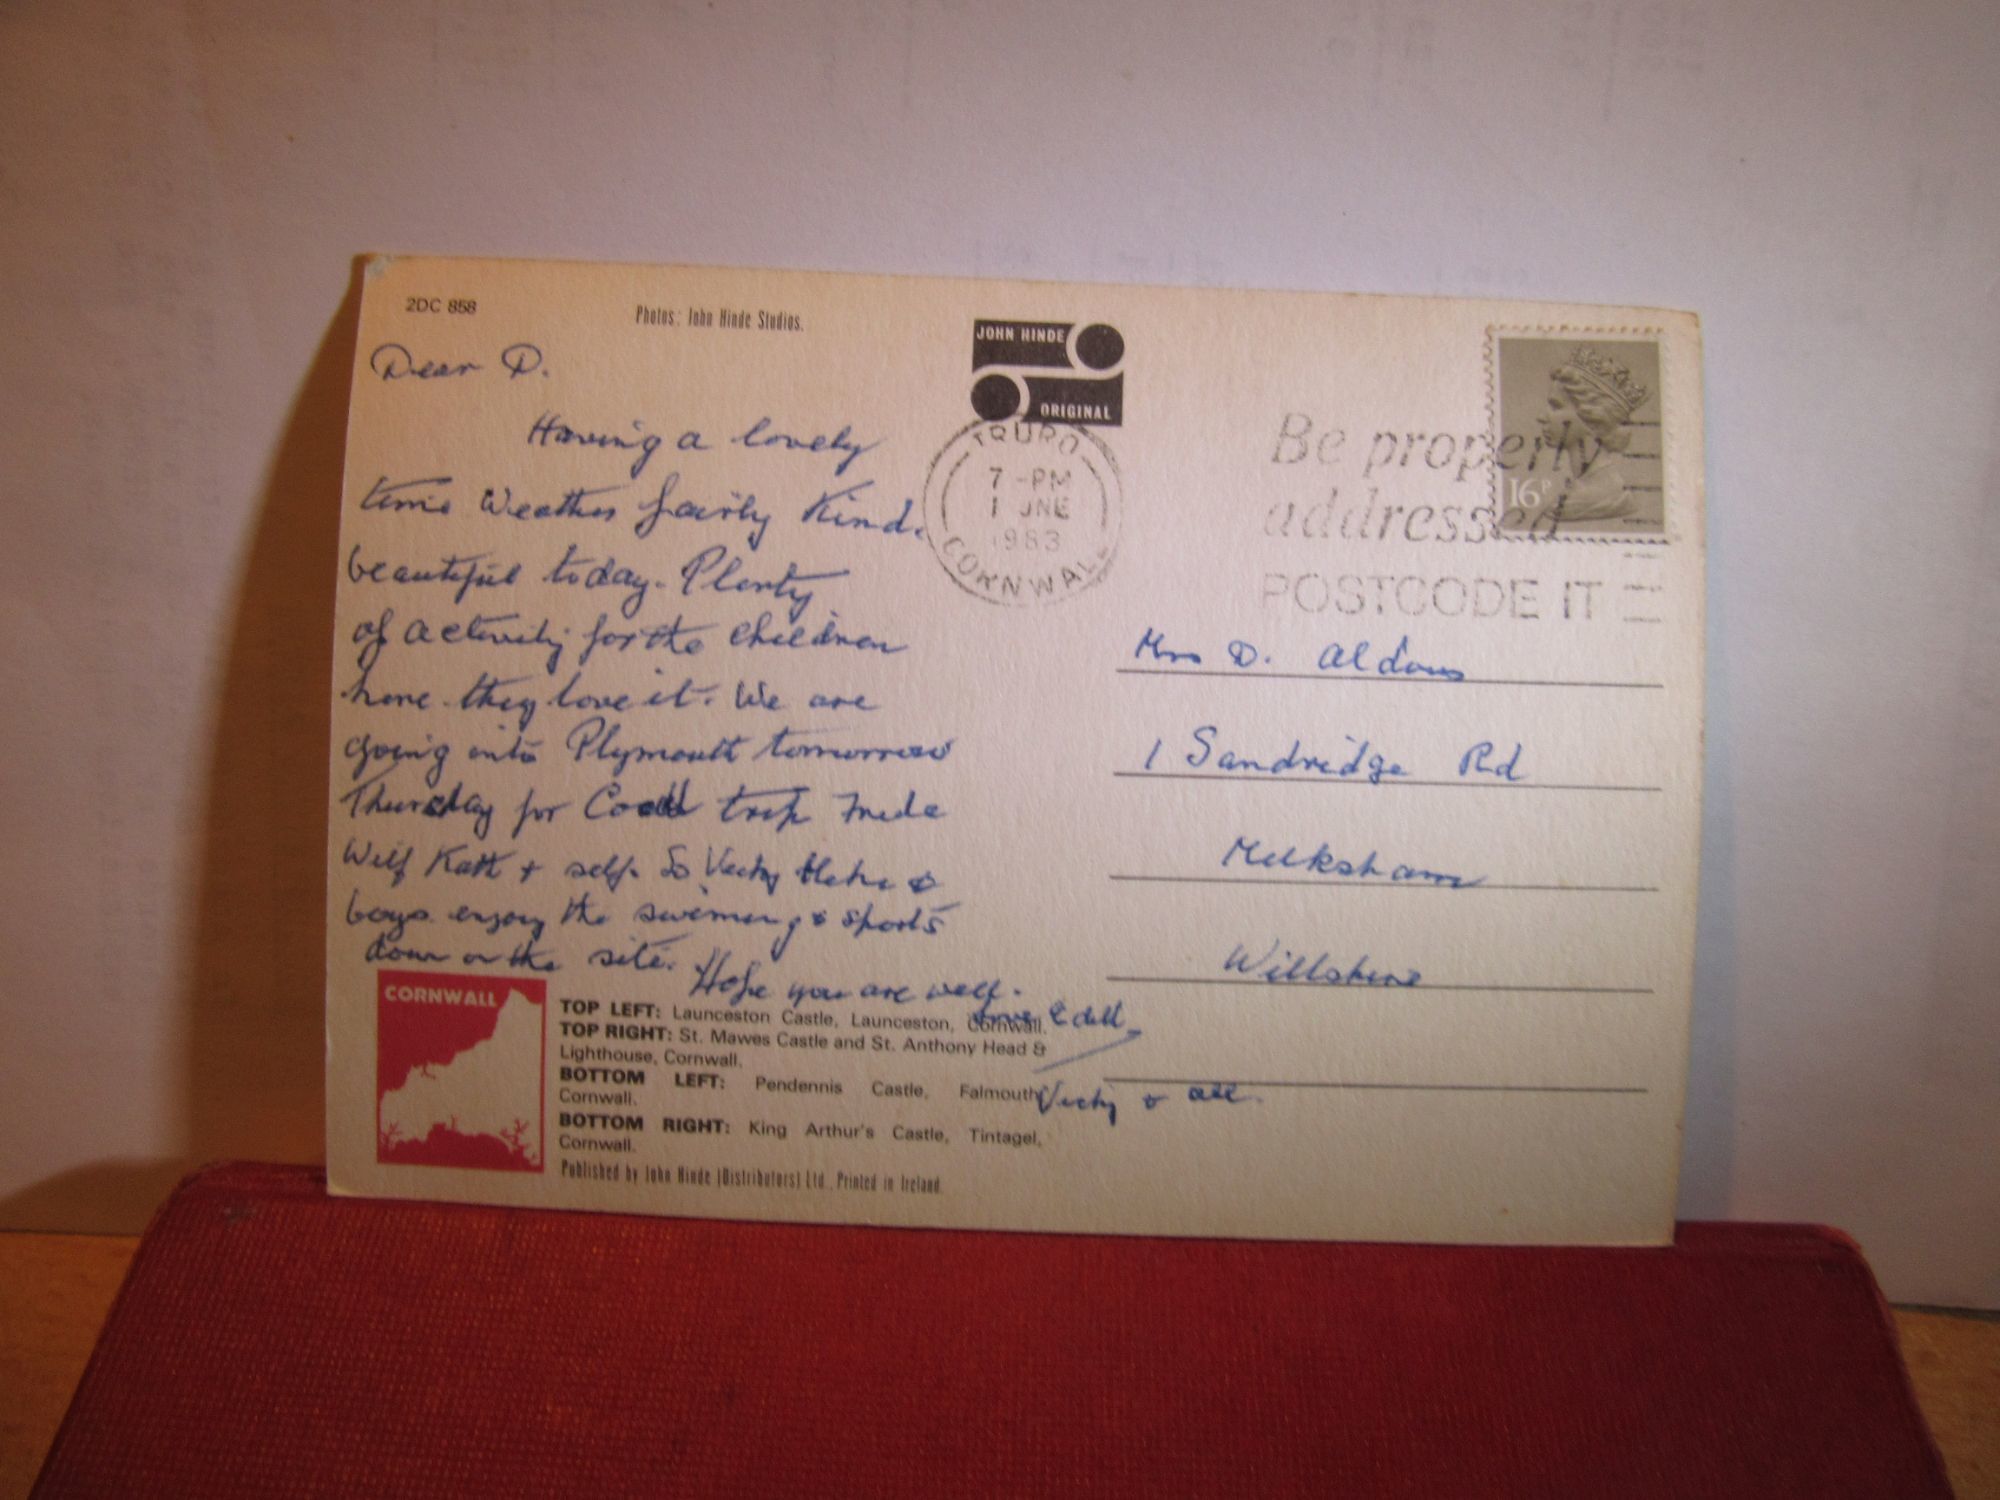 2DC 858
Photos: John Hinde Studios.
JOHN HINDE
ORIGINAL
TRURO
7-PM
1 JNE
1983
CORNWALL
Be properly
addressed
POSTCODE IT
16P
Dear D.
Having a lovely
time Weather fairly Kind.
beautiful today. Plenty
of activity for the children
here they love it. We are
going into Plymouth tomorrow
Thursday for trip
Wilf + self. So Vicky &
boys enjoy the swimming & sports
down on the site.
Hope you are well.
love
Vicky & all.
Mrs D. Aldous
1 Sandridge Rd
Melksham
Wiltshire
CORNWALL
TOP LEFT: Launceston Castle, Launceston, Cornwall.
TOP RIGHT: St. Mawes Castle and St. Anthony Head &
Lighthouse, Cornwall.
BOTTOM LEFT: Pendennis Castle, Falmouth
Cornwall.
BOTTOM RIGHT: King Arthur's Castle, Tintagel,
Cornwall.
Published by John Hinde (Distributors) Ltd., Printed in Ireland.